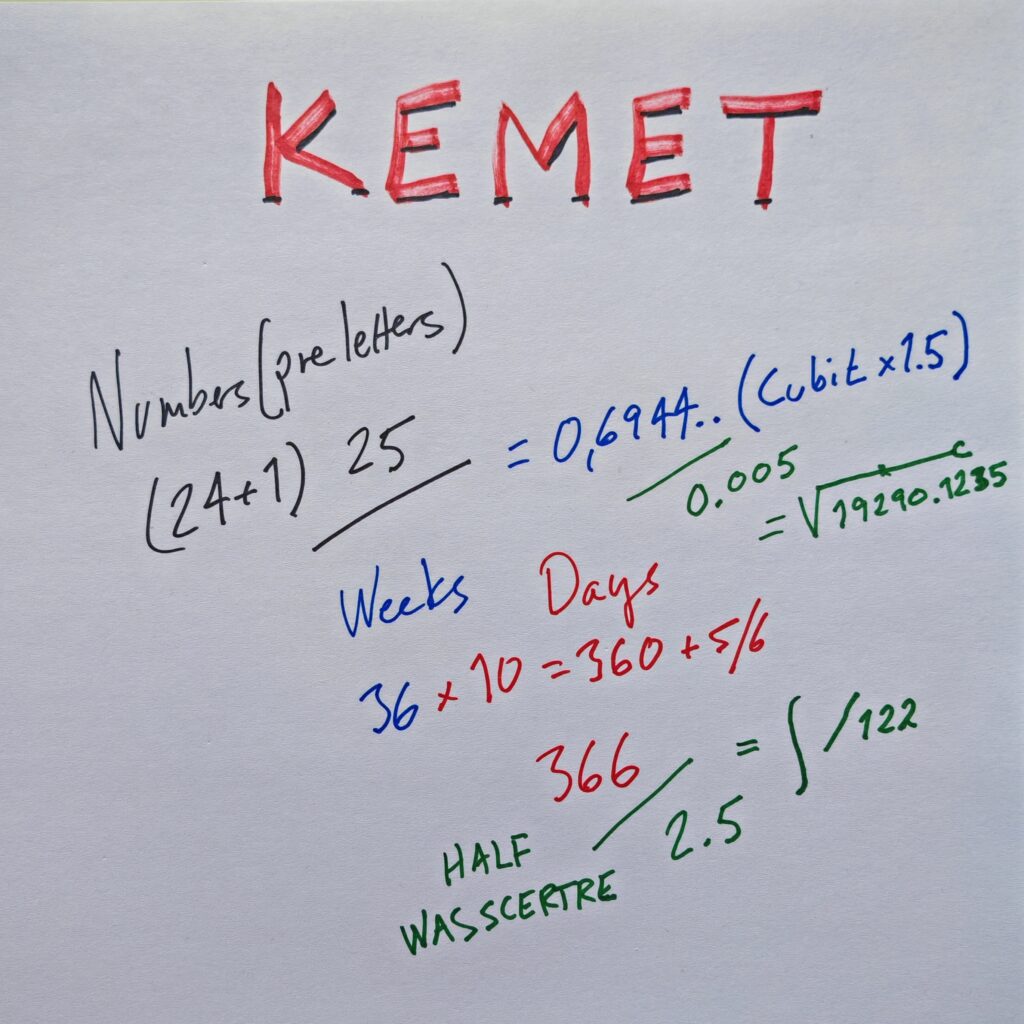 KEMET
Numbers (pre letters)
(24+1) 25 / = 0,6944.. (Cubit x 1.5)
/ 0.005
= √19290.1235
Weeks Days
36 x 10 = 360 + 5/6
366 / 2.5 = ∫ /122
HALF
WASSCERTRE